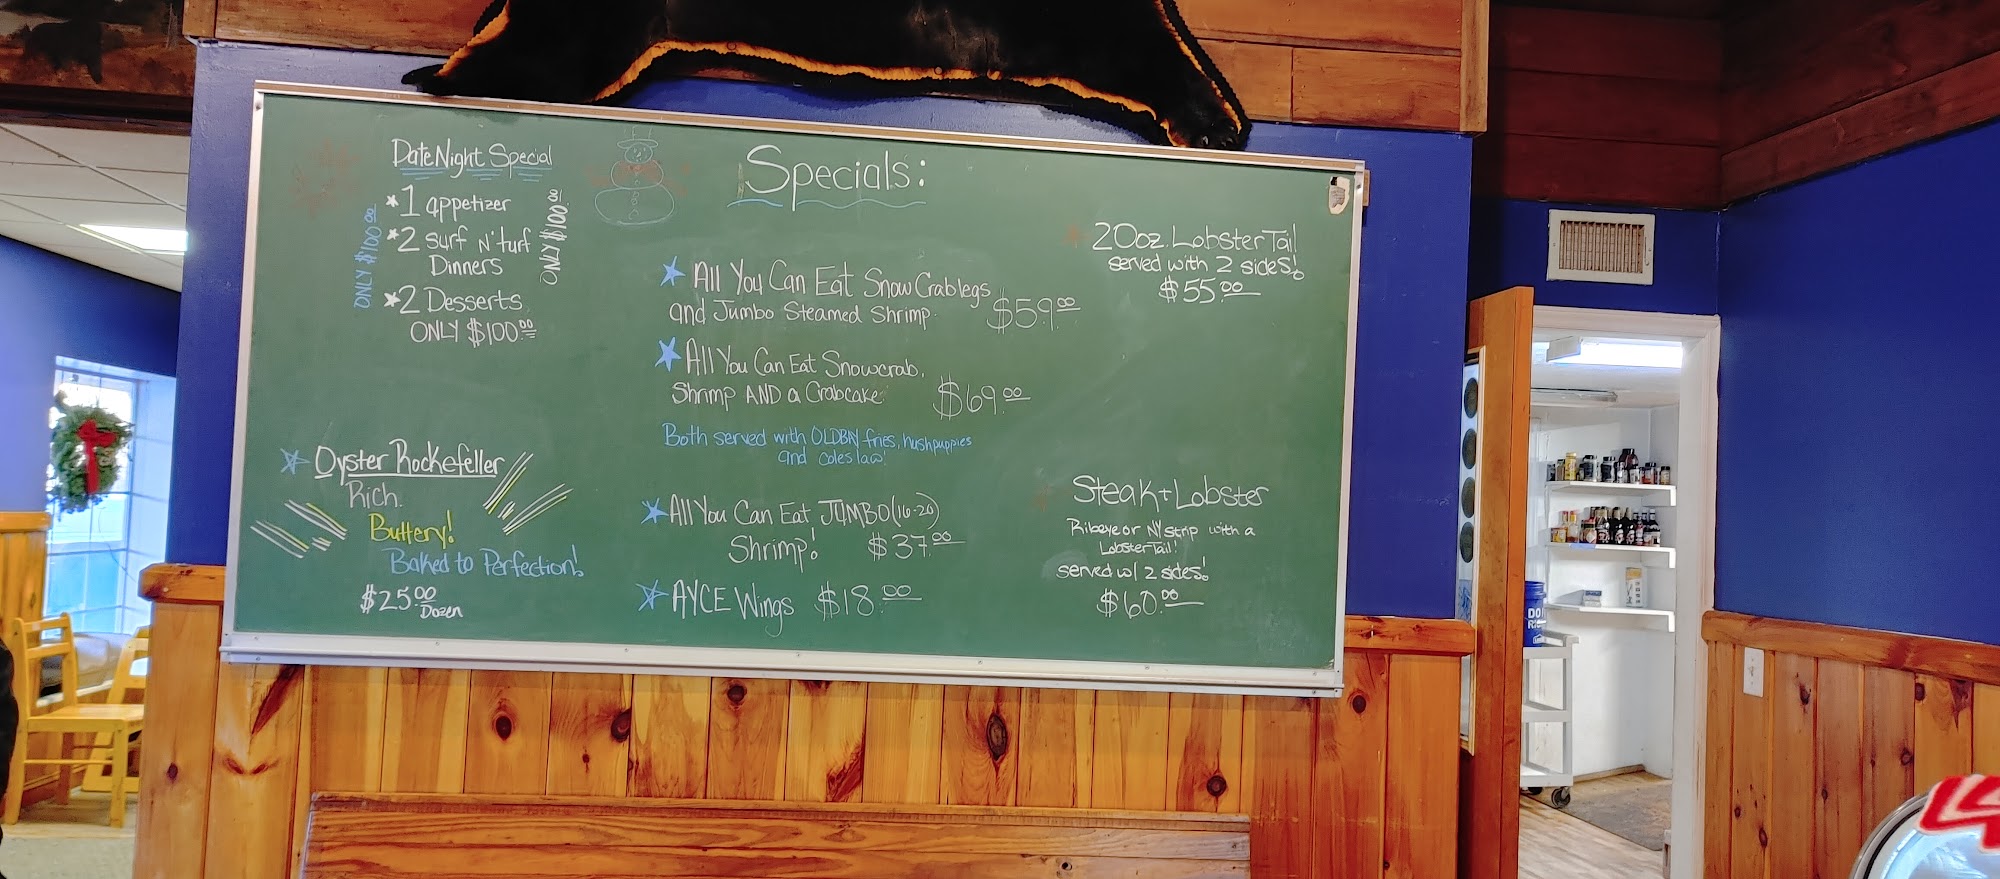 Date Night Special
*1 appetizer
*2 surf n' turf
Dinners
*2 Desserts
ONLY $100.00
ONLY $100.00
ONLY $100.00
Oyster Rockefeller
Rich.
Buttery!
Baked to Perfection!
$25.00
Dozen
Specials:
All You Can Eat Snow Crablegs
and Jumbo Steamed Shrimp $59.00
All You Can Eat Snowcrab,
Shrimp AND a Crabcake $69.00
Both served with OLDBAY fries, hushpuppies
and coleslaw
All You Can Eat JUMBO (16-20)
Shrimp! $37.00
AYCE Wings $18.00
20oz. Lobster Tail
served with 2 sides!
$55.00
Steak + Lobster
Ribeye or NY strip with a
Lobster Tail!
served w/ 2 sides!
$60.00